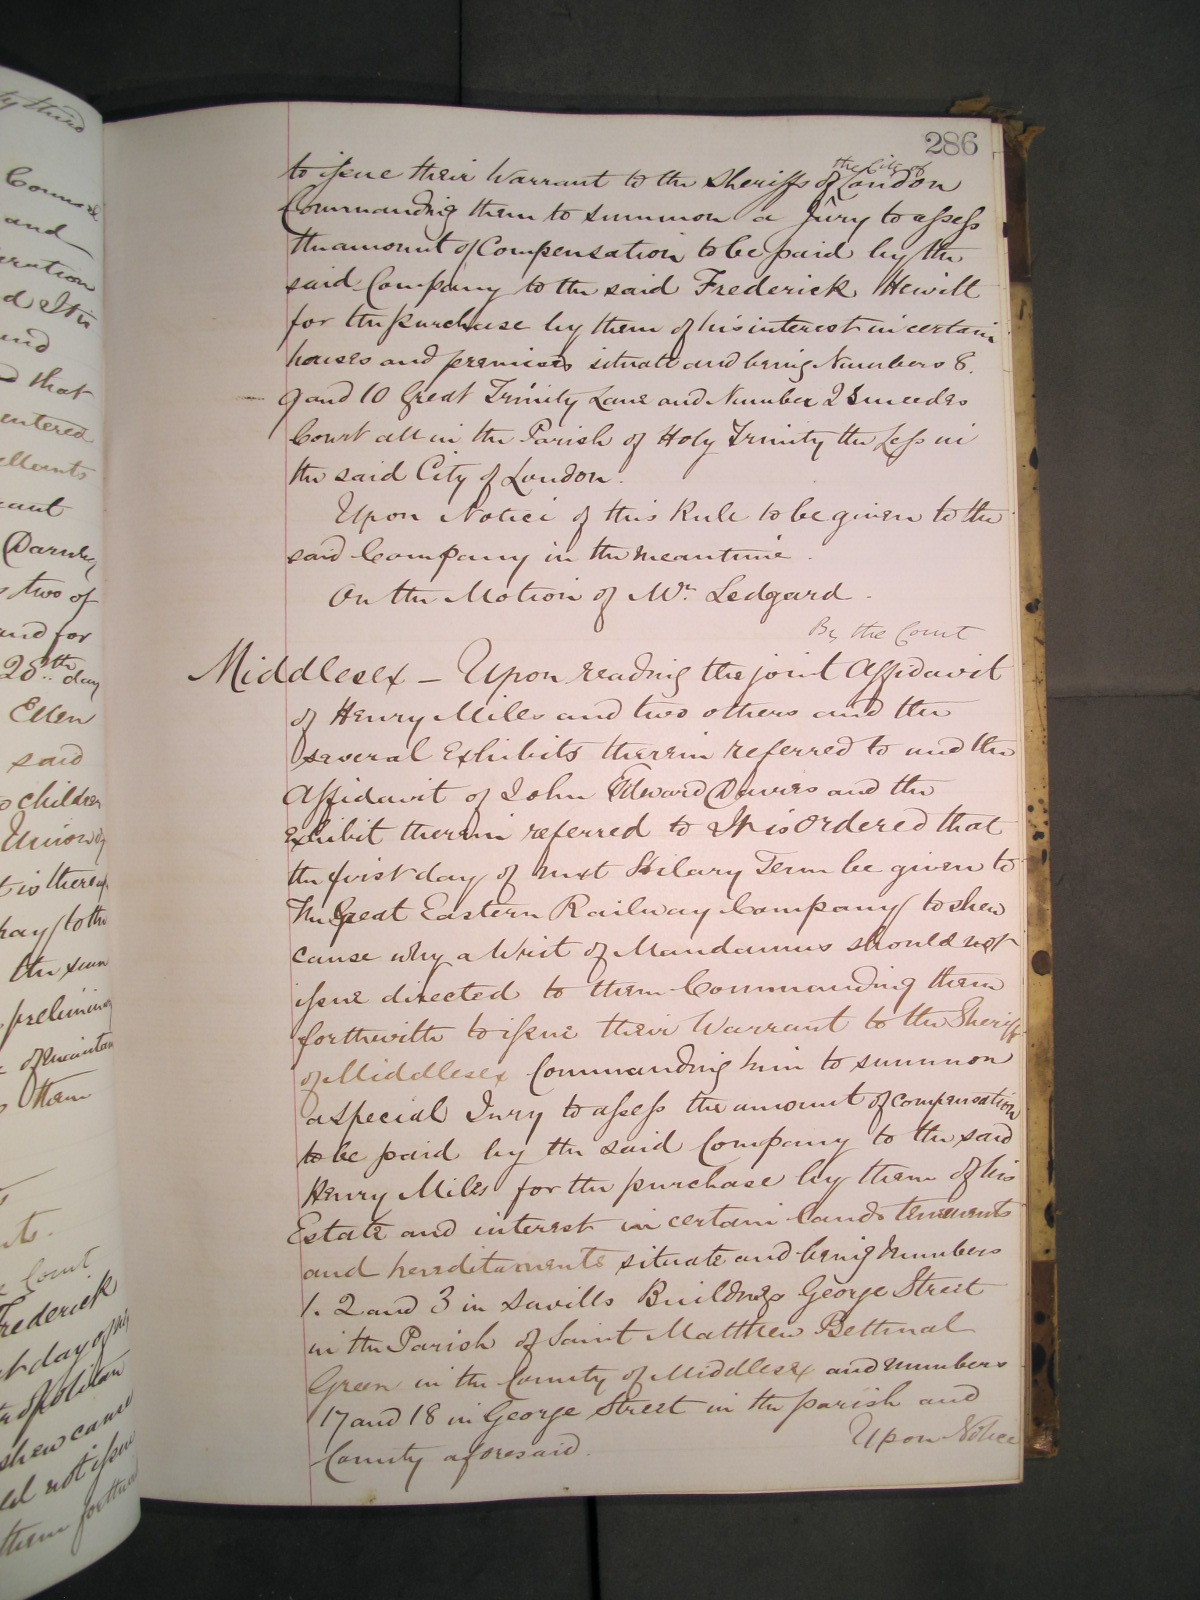 ty third
Counsel
and
eration
d It is
and
d that
entered
ellants
cant
Darnley
s two of
and for
28th day
Ellen
said
o children
Union of
t is thereup
hay to the
the sum
preliminary
of mainten
them
nts.
Court
Frederick
st day of
tropolitan
shew cause
ld not issue
them forthwith
286
to issue their Warrant to the Sheriffs of the City of London
Commanding them to summon a Jury to assess
the amount of Compensation to be paid by the
said Company to the said Frederick Hewitt
for the purchase by them of his interest in certain
houses and premises situate and being Numbers 8.
9 and 10 Great Trinity Lane and Number 2 Smeeds
Court all in the Parish of Holy Trinity the Less in
the said City of London.
Upon Notice of this Rule to be given to the
said Company in the meantime.
On the Motion of Mr. Ledgard.
By the Court
Middlesex – Upon reading the joint Affidavit
of Henry Miles and two others and the
several Exhibits therein referred to and the
Affidavit of John Edward Davies and the
exhibit therein referred to It is Ordered that
the first day of next Hilary Term be given to
The Great Eastern Railway Company to shew
cause why a Writ of Mandamus should not
issue directed to them Commanding them
forthwith to issue their Warrant to the Sheriff
of Middlesex Commanding him to summon
a special Jury to assess the amount of compensation
to be paid by the said Company to the said
Henry Miles for the purchase by them of his
Estate and interest in certain lands tenements
and hereditaments situate and being numbers
1. 2 and 3 in Savills Buildings George Street
in the Parish of Saint Matthew Bethnal
Green in the County of Middlesex and numbers
17 and 18 in George Street in the parish and
County aforesaid.
Upon Notice